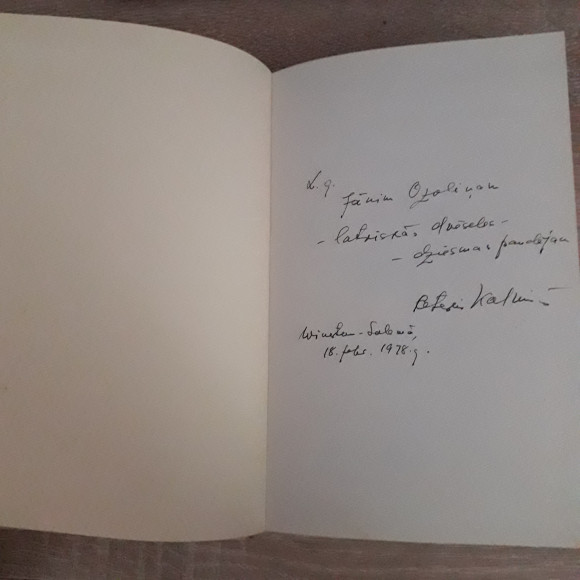 L. g.
Jānim Ozoliņam
- latviskās dvēseles -
- dziesmas paudējam
Kalniņš
Winston-Salemā,
18. febr. 1978. g.